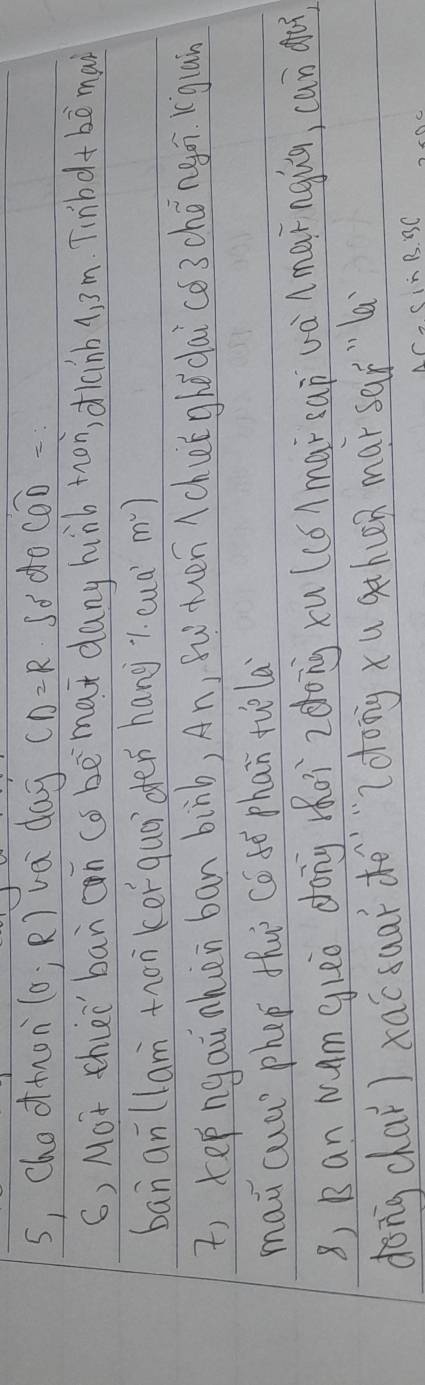 5, Cho đtròn (O; R) và dây CD = R. Số đo COD = :
6, Một chiếc bàn ăn có bề mặt dạng hình tròn, đkính 1,3m. Tính dt bề mặt
bàn ăn (làm tròn kết quả đến hàng % của m²)
7, Xếp ngẫu nhiên bạn bình, An, Sử trên 1 chiếc ghế dài có 3 chỗ ngồi. K gian
mẫu của phép thử có số phần tử là
8, Bạn Nam gieo đồng thời 2 đồng xu (có 1 mặt sấp và 1 mặt ngửa, cân đối,
đồng chất) xác suất để "2 đồng xu xhiện mặt sấp" là
AC = Sin B.BC